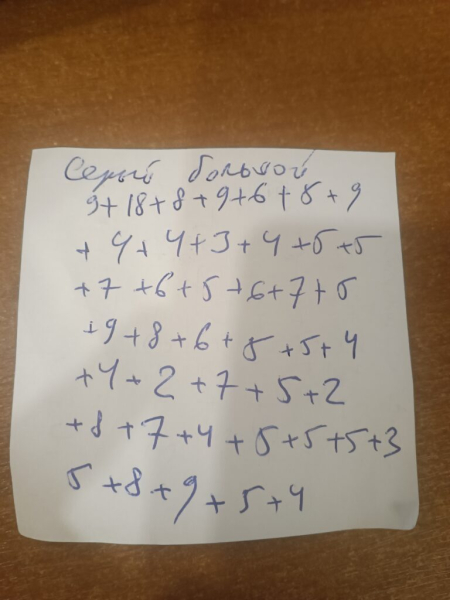 Серый большой
9+18+8+9+6+8+9
+4+4+3+4+5+5
+7+6+5+6+7+5
+9+8+6+5+5+4
+4+2+7+5+2
+8+7+4+5+5+5+3
5+8+9+5+4